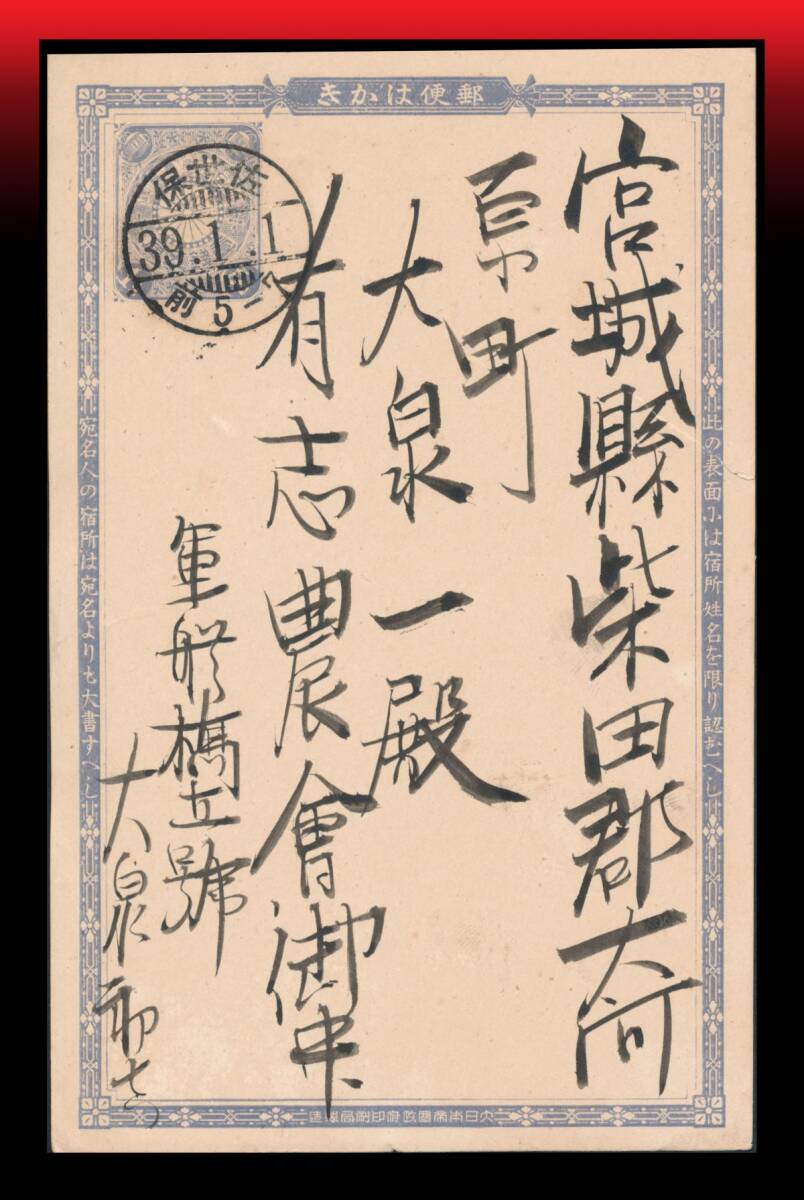 郵便はかき
此の表面には宿所姓名を限り認むへし
宮城縣柴田郡大河
原町
大泉一殿
有志農會御中
軍艦橋立號
大泉
佐世保
39.1.1
前5-7
宛名人の宿所は宛名よりも大書すへし
大日本帝國政府印刷局製造